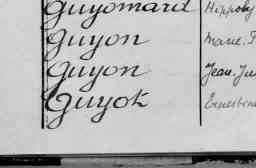 Guyomard Hippoly
Guyon Marie-
Guyon Jean-Ju
Guyot Ernestine